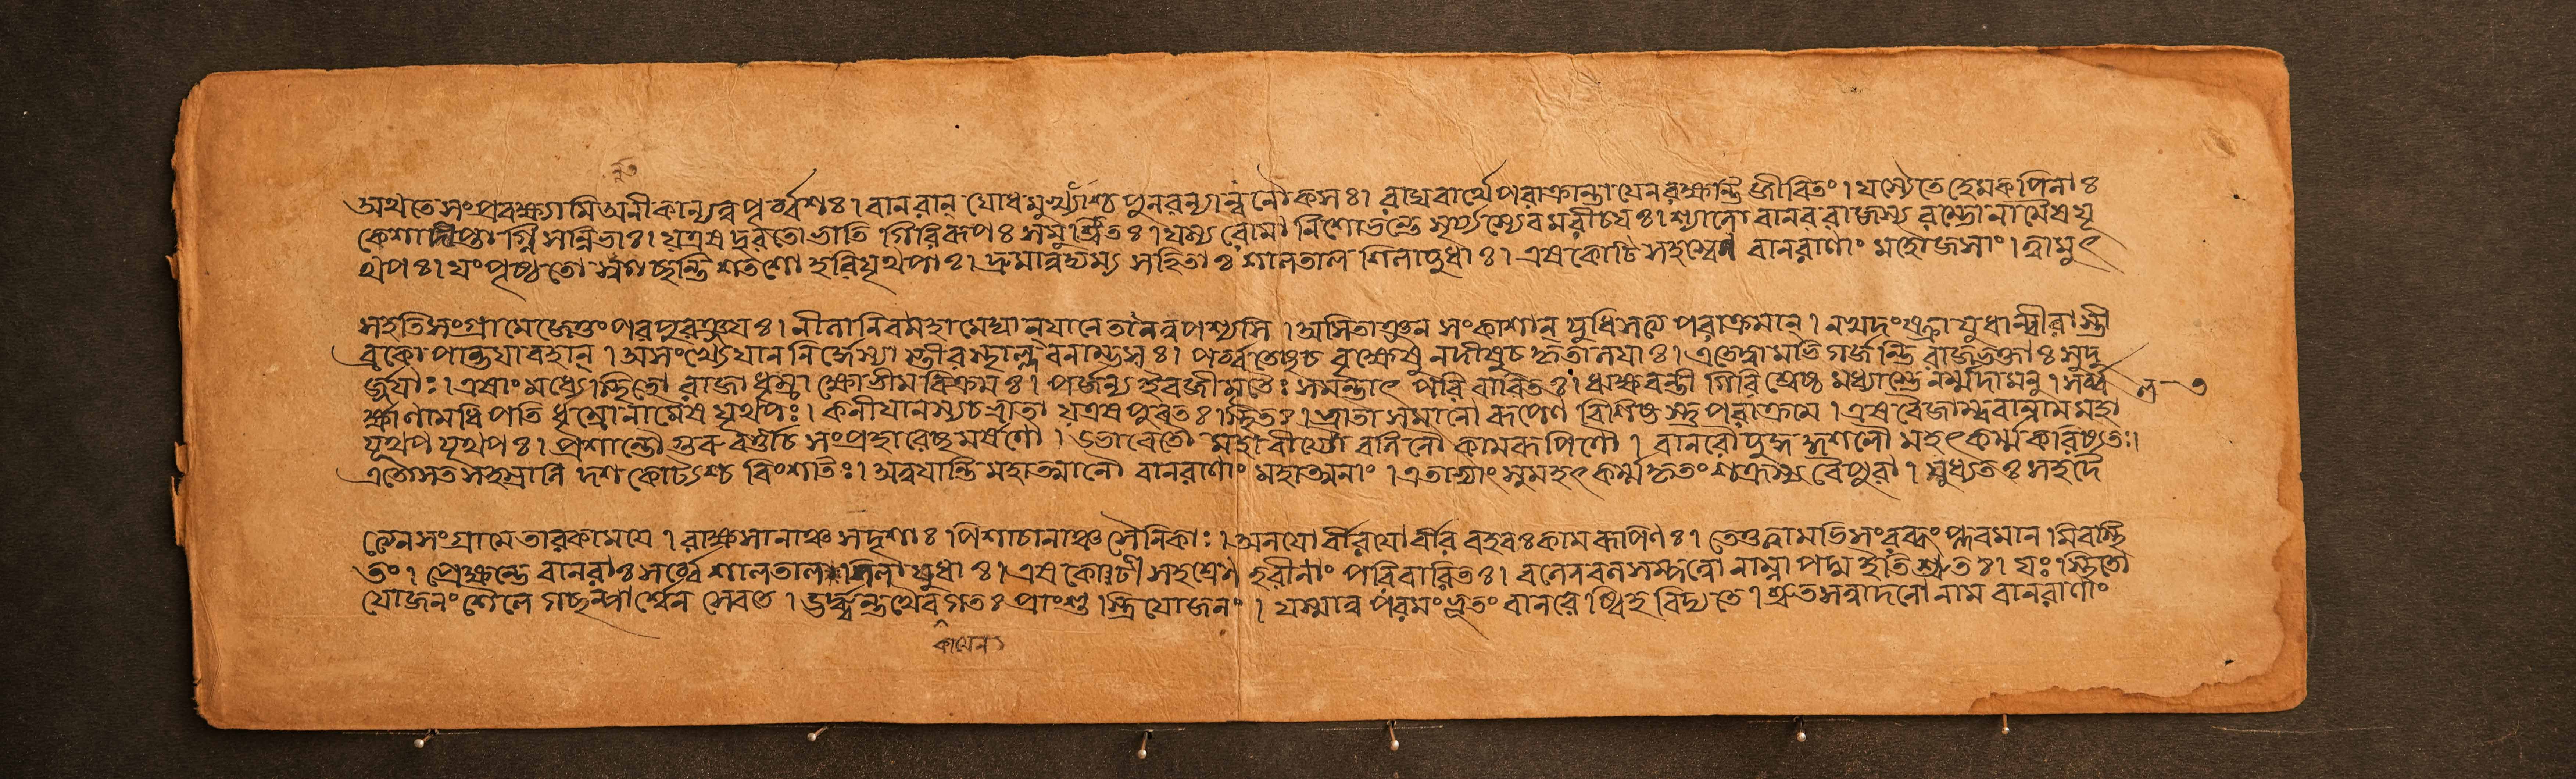 নুত
অথতে সংপ্রবক্ষ্যামি অনীকান্যনুপূর্ব্বশঃ। বানরান্ যোধমুখ্যাংশ্চ পুনরন্যান্বনৌকসঃ। রাঘবার্থে পরাক্রান্তা যেনরক্ষন্তি জীবিতং। যস্যৈতে হেমকপিনাঃ
কেশা দীপ্তাগ্নি সন্নিভাঃ। যত্রষ দূরতো ভাতি গিরিরূপঃ সমুশ্রিতঃ। যস্য রোমা নিশোভন্তে সূর্য্যস্যেব মরীচয়ঃ। শ্যানো বানররাজস্য রম্ভো নামৈষ যূ
থপঃ। যং পৃষ্ঠতো নুগচ্ছন্তি শতশো হরিযূথপাঃ। দ্রুমানুদ্যম্য সহিতাঃ শালতাল শিলায়ুধাঃ। এষ কোটি সহস্রেন বানরাণাং মহৌজসাং। ত্বামুৎ
সহতি সংগ্রামে জেতুং পরপুরঞ্জয়ঃ। নীলানিব মহামেঘান্ যানেতাননুপশ্যসি। অসিতাঞ্জন সংকাশান্ যুধি সত্য পরাক্রমান্। নখদংষ্ট্রাযুধান্বীরাংস্তী
ব্রকোপান্ভয়াবহান্। অসংখ্যেয়ান নির্দ্দেস্যাংস্তীরস্থাল্লবনাম্ভসঃ। পর্ব্বতেষুচ বৃক্ষেষু নদীষুচ কৃতালয়াঃ। এতেত্বামভি গর্জন্তি রাজভক্তাঃ সুদু
র্জ্জয়াঃ। এষাং মধ্যে স্থিতো রাজা ধূম্রাক্ষো ভীমবিক্রমঃ। পর্জন্য ইব জীমূতৈঃ সমন্তাৎ পরিবারিতঃ। ঋক্ষবন্তী গিরিশ্রেষ্ঠ মধ্যাস্তে নর্ম্মদামনু। সর্ব্ব
র্ক্ষাণামধিপতি ধূম্রো নামৈষ যূথপঃ। কনীয়ানস্যচ ভ্রাতা য়এষ পুরতঃ স্থিতঃ। ভ্রাতা সমানো রূপেণ বিশিষ্টস্তু পরাক্রমে। এষ বৈ জাম্ববান্নাম মহা
যূথপ যূথপঃ। প্রশান্তো গুরুবর্ত্তীচ সংপ্রহারেষ্বমর্ষণৌ। মহাবীর্য্যৌ বলিনৌ কামরূপিণৌ। বানরৌ মহৎকর্ম্ম করিষ্যতঃ।
এতৌ সত সহস্রানি দশ কোট্যশ্চ বিংশতিঃ। অনুয়ান্তি মহাত্মানৌ বানরাণাং মহাত্মনাং। এতাভ্যাং সুমহৎকর্ম্ম কৃতং শক্রস্য বৈপুরা। যুধ্যতঃ সহদৈ
ত্যেন সংগ্রামে তারকাময়ে। রাক্ষসানাঞ্চ সদৃশাঃ পিশাচানাঞ্চ সৈনিকাঃ। অনয়ো র্বীরয়ো র্বীর বহবঃ কামরূপিণঃ। প্লবমান মিবস্থি
তং। প্রেক্ষন্তে বানরাঃ সর্ব্বে শালতাল শিলাযুধাঃ। এষ কোটী সহশ্রেণ হরীনাং পরিবারিতঃ। বলেন বলসম্পন্নো নাম্না পদ্ম ইতি শ্রুতঃ। যঃ স্থিতো
যোজনং শৈলে গচ্ছন্পার্শ্বেন সেবতে। ঊর্দ্ধন্তথৈব গতঃ প্রাংশু স্ত্রিযোজনং। যস্মান্ন পরমং ভূতং বানরেষ্বিহ বিদ্যতে। শ্রুত সন্নাদনো নাম বানরাণাং
কায়েন